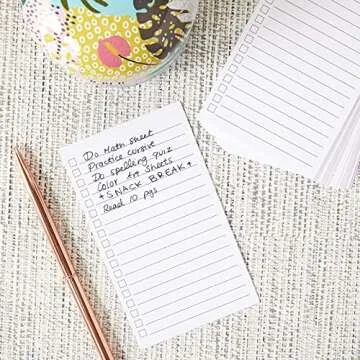 Do Math sheet
Practice cursive
Do spelling quiz
Color Art sheets
* SNACK BREAK *
Read 10 pgs